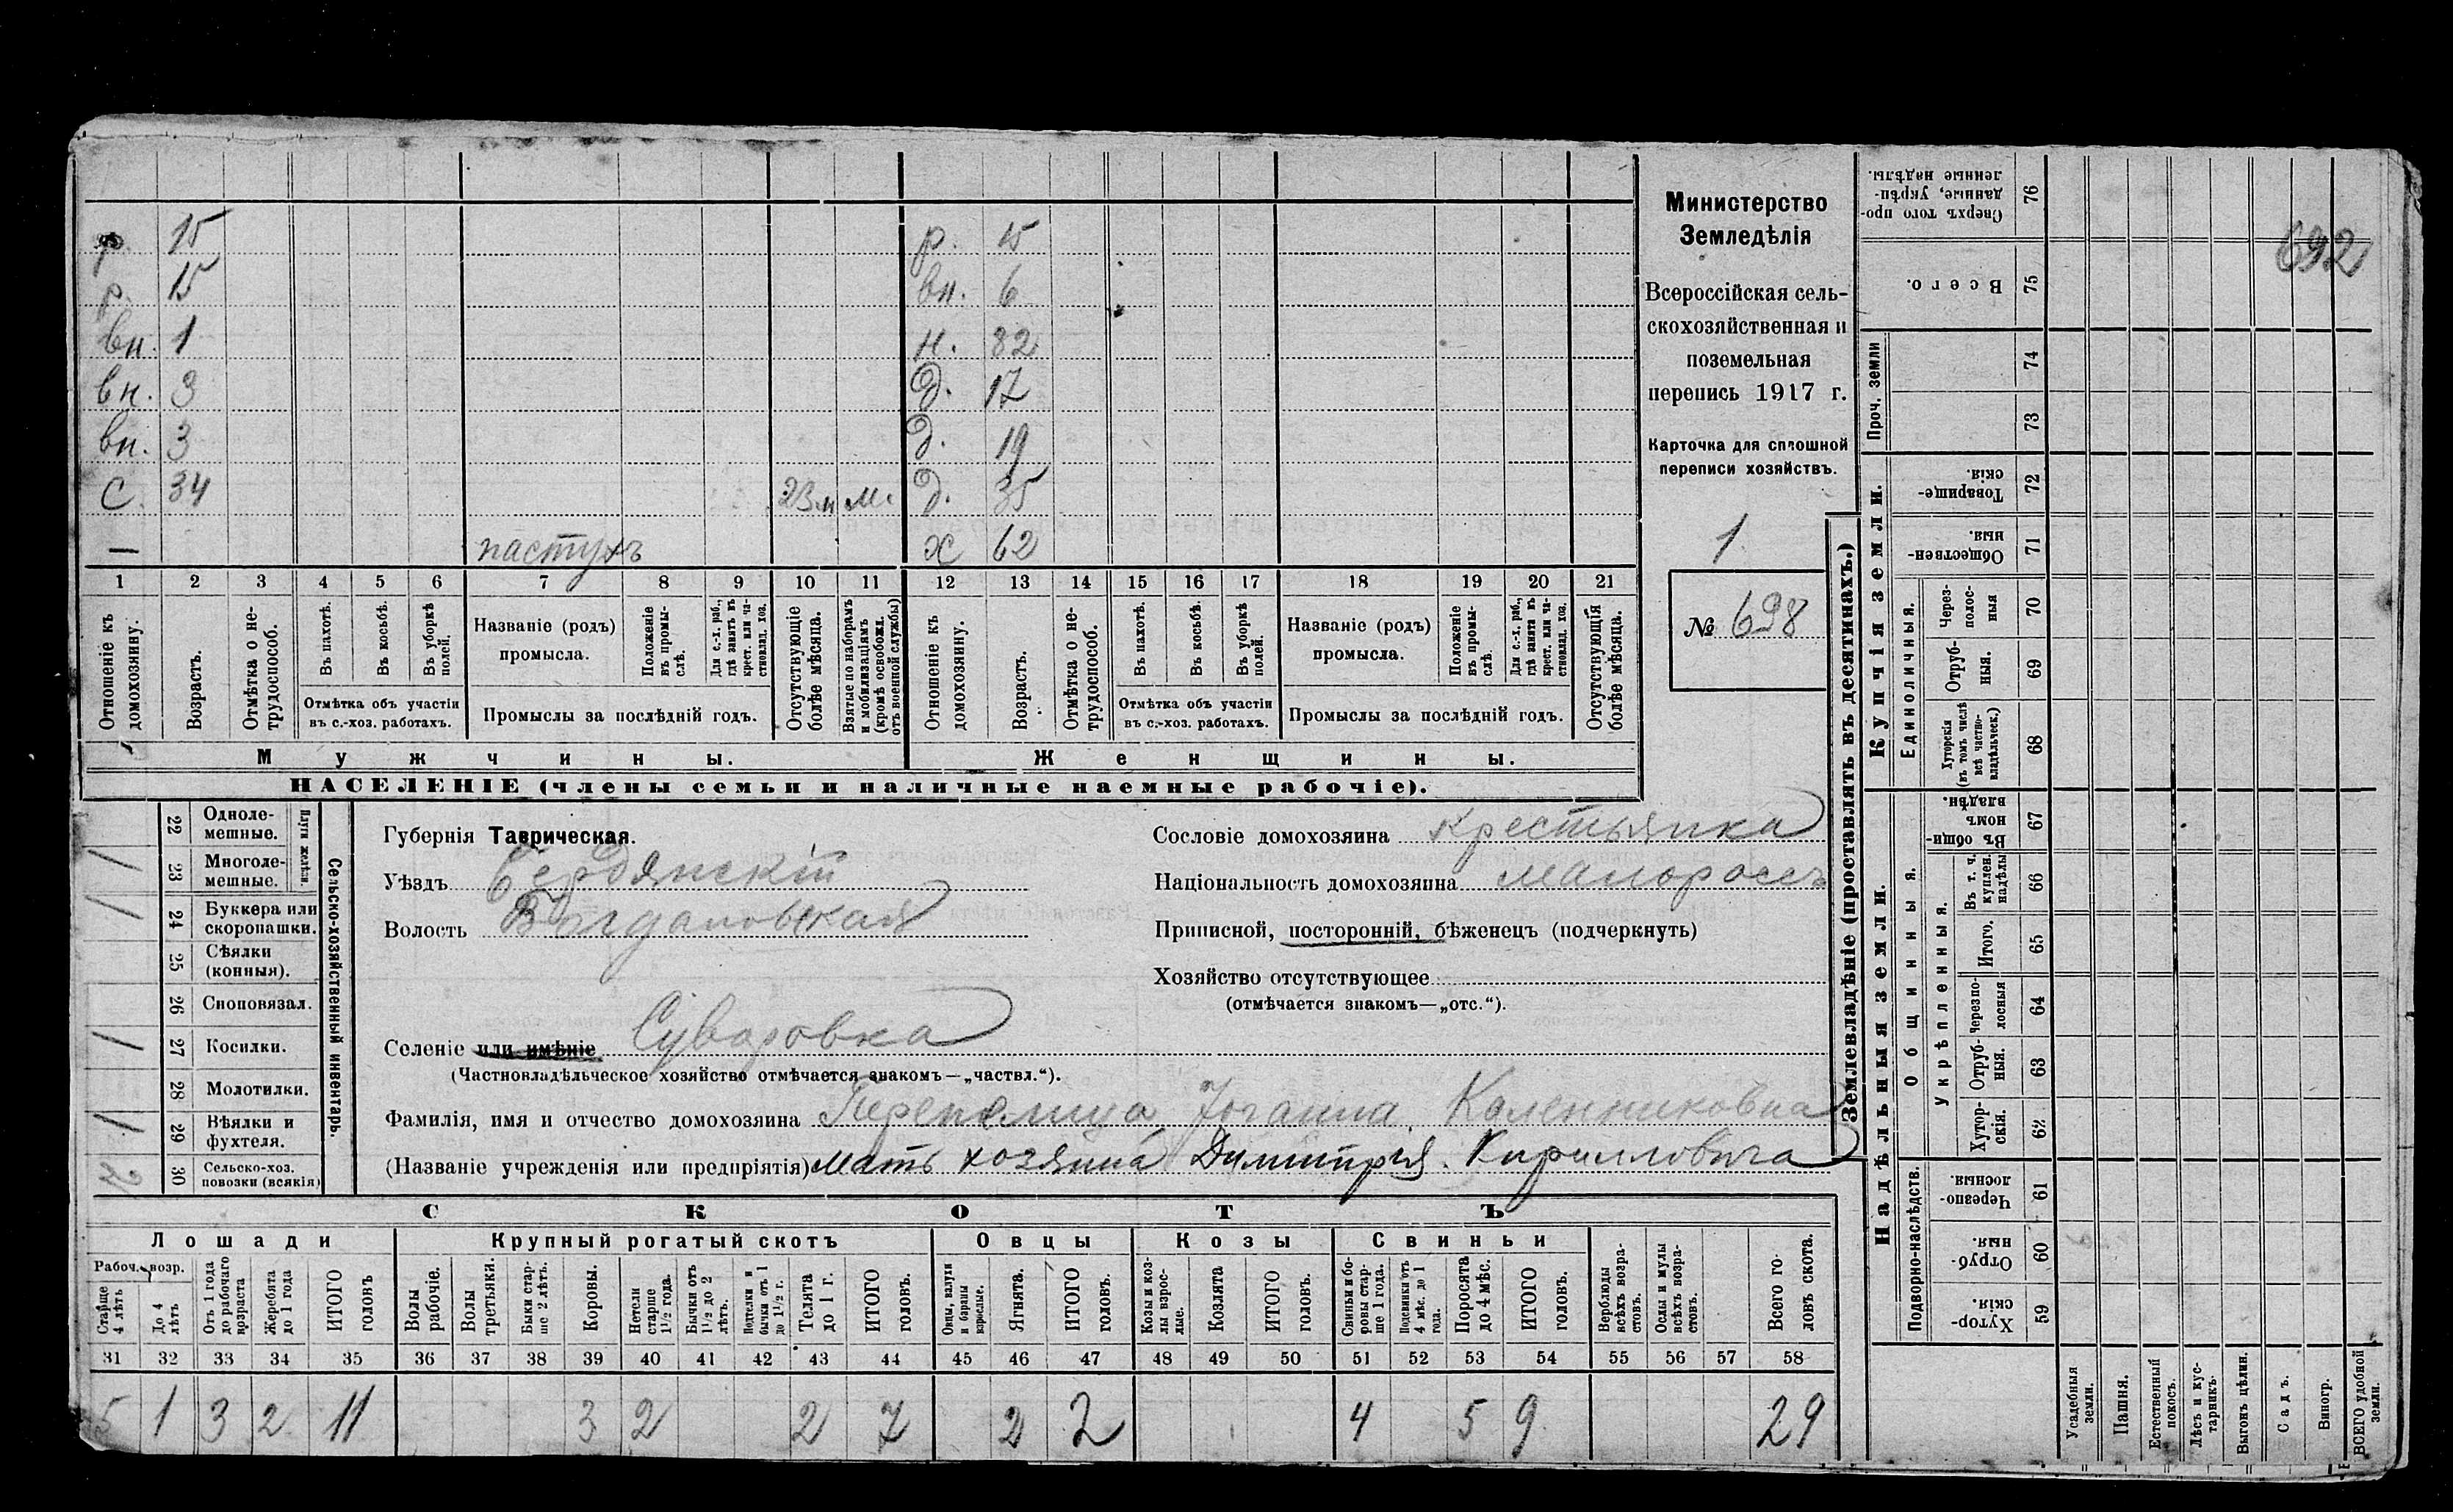 Министерство
Земледѣлія
Всероссійская сель-
скохозяйственная и
поземельная
перепись 1917 г.
Карточка для сплошной
переписи хозяйствъ.
1
№ 698
692
р. 15 р. 15
р. 15 вн. 6
вн. 1 н. 32
вн. 3 д. 17
вн. 3 д. 19
с. 34 м. д. 35
— пастухъ ж 62
1 2 3 4 5 6 7 8 9 10 11 12 13 14 15 16 17 18 19 20 21
Отношеніе къ домохозяину.
Возрастъ.
Отмѣтка о не-трудоспособ.
Въ пахотѣ.
Въ косьбѣ.
Въ уборкѣ полей.
Отмѣтка объ участіи
въ с.-хоз. работахъ.
Названіе (родъ)
промысла.
Положеніе въ промы-слѣ.
Для с.-х. раб., гдѣ занятъ въ крест. или ча-стновлад. хоз.
Промыслы за послѣдній годъ.
Отсутствующіе болѣе мѣсяца.
Взятые по наборамъ и мобилизаціямъ (кромѣ освобожд. отъ военной службы)
Отношеніе къ домохозяину.
Возрастъ.
Отмѣтка о не-трудоспособ.
Въ пахотѣ.
Въ косьбѣ.
Въ уборкѣ полей.
Отмѣтка объ участіи
въ с.-хоз. работахъ.
Названіе (родъ)
промысла.
Положеніе въ промы-слѣ.
Для с.-х. раб., гдѣ занята въ крест. или ча-стновлад. хоз.
Промыслы за послѣдній годъ.
Отсутствующія болѣе мѣсяца.
Мужчины. Женщины.
НАСЕЛЕНІЕ (члены семьи и наличные наемные рабочіе).
Сельско-хозяйственный инвентарь.
Плуги желѣзн.
22 Одноле-мешные.
/ 23 Многоле-мешные.
/ 24 Буккера или скоропашки.
25 Сѣялки (конныя).
26 Сноповязал.
/ 27 Косилки.
28 Молотилки.
/ 29 Вѣялки и фухтеля.
2 30 Сельско-хоз. повозки (всякія)
Губернія Таврическая.
Уѣздъ Бердянскій
Волость Богдановская
Сословіе домохозяина крестьянка
Національность домохозяина малороссъ
Приписной, посторонній, бѣженецъ (подчеркнуть)
Хозяйство отсутствующее
(отмѣчается знакомъ—„отс.“).
Селеніе или имѣніе Суворовка
(Частновладѣльческое хозяйство отмѣчается знакомъ—„частвл.“).
Фамилія, имя и отчество домохозяина Перепелица Калениковна
(Названіе учрежденія или предпріятія) мать хозяина Димитрія Кирилловича
СКОТЪ
Лошади Крупный рогатый скотъ Овцы Козы Свиньи
Рабоч. возр.
Старше 4 лѣтъ
До 4 лѣтъ
Отъ 1 года до рабочаго возраста
Жеребята до 1 года
ИТОГО головъ
Волы рабочіе.
Волы третьяки.
Быки стар-ше 2 лѣтъ.
Коровы.
Нетели старше 1½ года.
Бычки отъ 1½ до 2 лѣтъ.
Подтелки и бычки отъ 1 до 1½ г.
Телята до 1 г.
ИТОГО головъ.
Овцы, валухи и бараны взрослые.
Ягнята.
ИТОГО головъ.
Козы и коз-лы взрос-лые.
Козлята
ИТОГО головъ.
Свиньи и бо-ровы стар-ше 1 года.
Подсвинки отъ 4 мѣс. до 1 года.
Поросята до 4 мѣс.
ИТОГО головъ.
Верблюды всѣхъ возра-стовъ.
Ослы и мулы всѣхъ возра-стовъ.
Всего го-ловъ скота.
31 32 33 34 35 36 37 38 39 40 41 42 43 44 45 46 47 48 49 50 51 52 53 54 55 56 57 58
5 1 3 2 11 3 2 2 7 2 2 4 5 9 29
Землевладѣніе (проставлять въ десятинахъ.)
Купчія земли.
Надѣльныя земли.
Сверхъ того про-данные, укрѣп-ленные надѣлы. 76
Всего. 75
Проч. земли 74
73
Товарище-скія. 72
Обществен-ныя. 71
Единоличныя.
Через-полос-ныя 70
Отруб-ныя. 69
Хуторскія (въ томъ числѣ всѣ частно-владѣльческ.) 68
Общинныя.
Въ общи-номъ владѣн. 67
Укрѣпленныя.
Въ т. ч. куплен. надѣлы 66
Итого. 65
Черезпо-лосныя 64
Отруб-ныя. 63
Хутор-скія. 62
Подворно-наслѣдств.
Черезпо-лосныя. 61
Отруб-ныя. 60
Хутор-скія. 59
Усадебныя земли.
Пашня.
Естественный покосъ.
Лѣсъ и кус-тарникъ.
Выгонъ цѣлин.
Садъ.
Виногр.
ВСЕГО удобной земли.